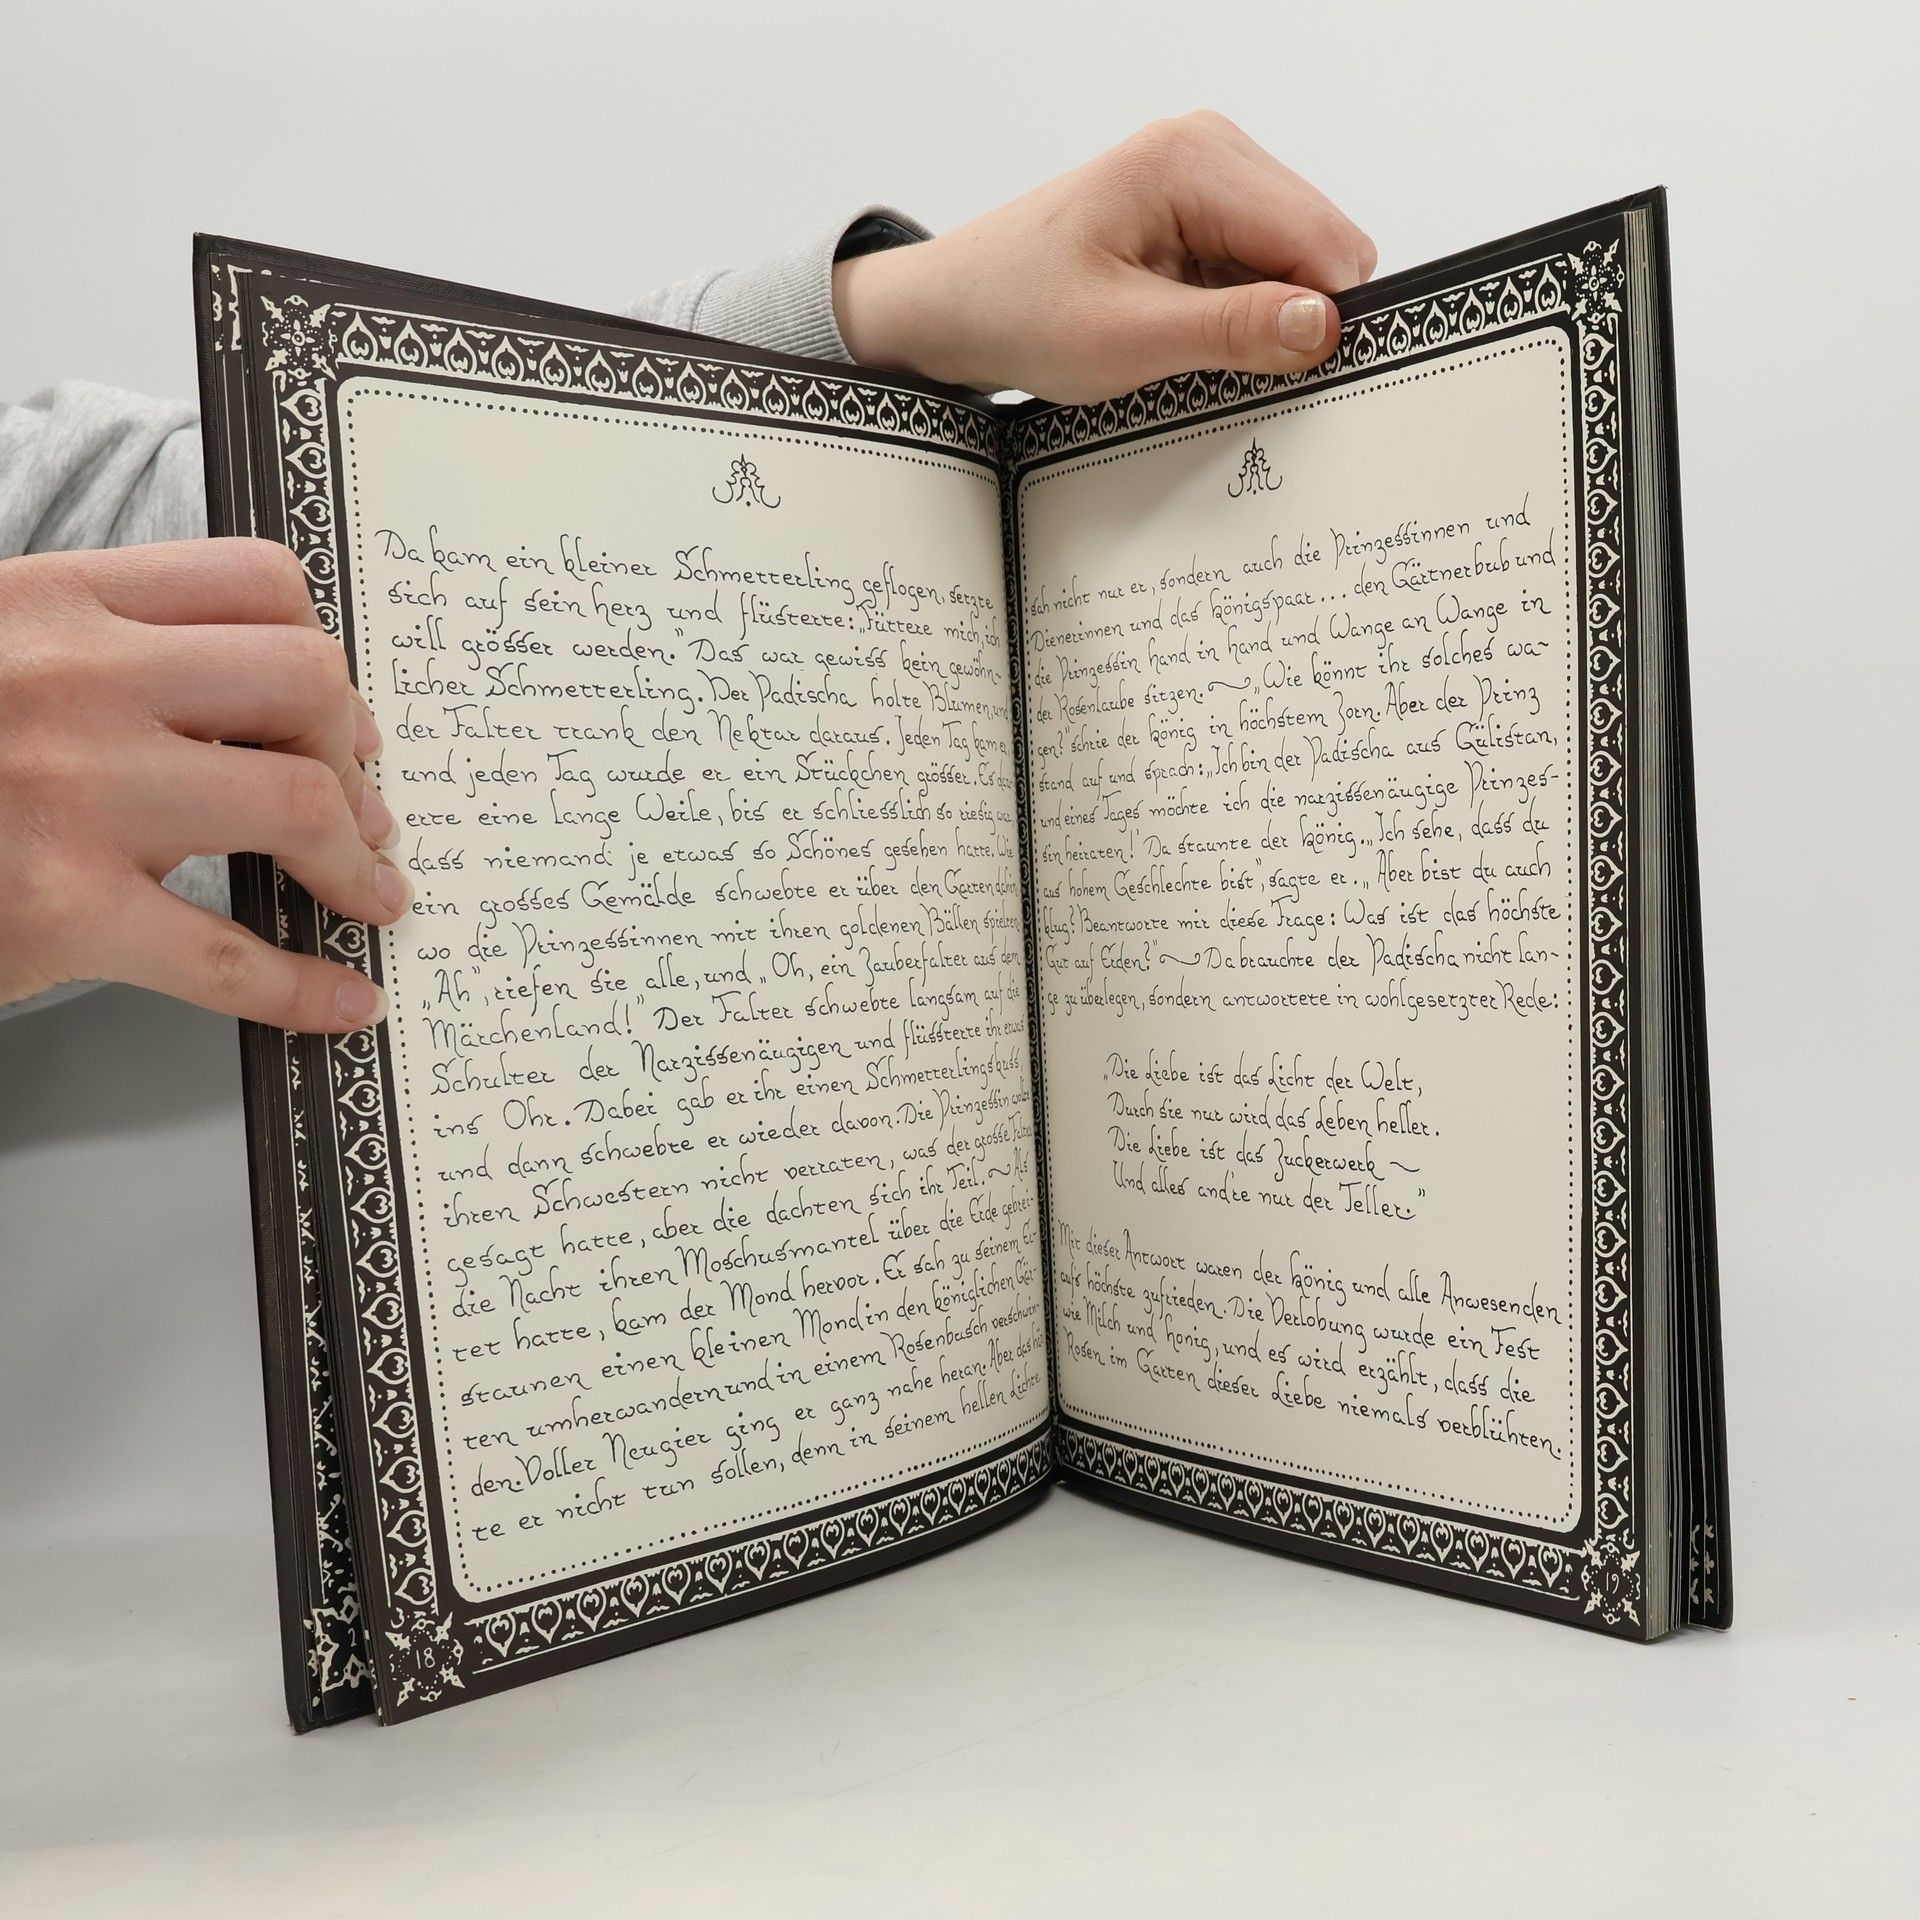 Da kam ein kleiner Schmetterling geflogen, setzte
sich auf sein herz und flüsterte: „Füttere mich, ich
will grösser werden.” Das war gewiss kein gewöhn-
licher Schmetterling. Der Padischa holte Blumen, und
der Falter trank den Nektar daraus. Jeden Tag kam er,
und jeden Tag wurde er ein Stückchen grösser. Es dau-
erte eine lange Weile, bis er schliesslich so riesig war,
dass niemand je etwas so Schönes gesehen hatte. Wie
ein grosses Gemälde schwebte er über den Garten dahin,
wo die Prinzessinnen mit ihren goldenen Bällen spielten.
„Ah”, riefen sie alle, und „Oh, ein Zauberfalter aus dem
Märchenland!” Der Falter schwebte langsam auf die
Schulter der Narzissenäugigen und flüssterte ihr etwas
ins Ohr. Dabei gab er ihr einen Schmetterlingskuss,
und dann schwebte er wieder davon. Die Prinzessin wollte
ihren Schwestern nicht verraten, was der grosse Falter
gesagt hatte, aber die dachten sich ihr Teil. ~ Als
die Nacht ihren Moschusmantel über die Erde gebrei-
tet hatte, kam der Mond hervor. Er sah zu seinem Er-
staunen einen kleinen Mond in den königlichen Gär-
ten umherwandern und in einem Rosenbusch verschwin-
den. Voller Neugier ging er ganz nahe heran. Aber das hät-
te er nicht tun sollen, denn in seinem hellen Lichte
18
sah nicht nur er, sondern auch die Prinzessinnen und
Dienerinnen und das königspaar... den Gärtnerbub und
die Prinzessin hand in hand und Wange an Wange in
der Rosenlaube sitzen. ~ „Wie könnt ihr solches wa-
gen?” schrie der könig in höchstem Zorn. Aber der Prinz
stand auf und sprach: „Ich bin der Padischa aus Gülistan,
und eines Tages möchte ich die narzissenäugige Prinzes-
sin heiraten!” Da staunte der könig. „Ich sehe, dass du
aus hohem Geschlechte bist”, sagte er. „Aber bist du auch
klug? Beantworte mir diese Frage: Was ist das höchste
Gut auf Erden?” ~ Da brauchte der Padischa nicht lan-
ge zu überlegen, sondern antwortete in wohlgesetzter Rede:
„Die Liebe ist das Licht der Welt,
Durch sie nur wird das Leben heller.
Die Liebe ist das Zuckerwerk ~
Und alles and're nur der Teller.”
Mit dieser Antwort waren der könig und alle Anwesenden
aufs höchste zufrieden. Die Verlobung wurde ein Fest
wie Milch und honig, und es wird erzählt, dass die
Rosen im Garten dieser Liebe niemals verblühten.
19